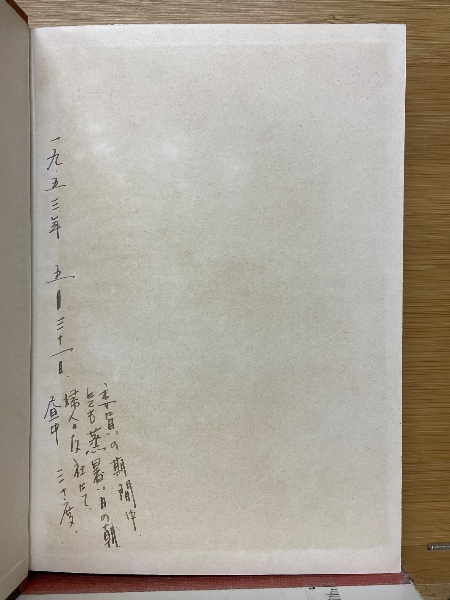 の期間中
とても蒸暑い日の朝
婦人の友社にて
一九五三年 五月三十一日
昼中 三十度